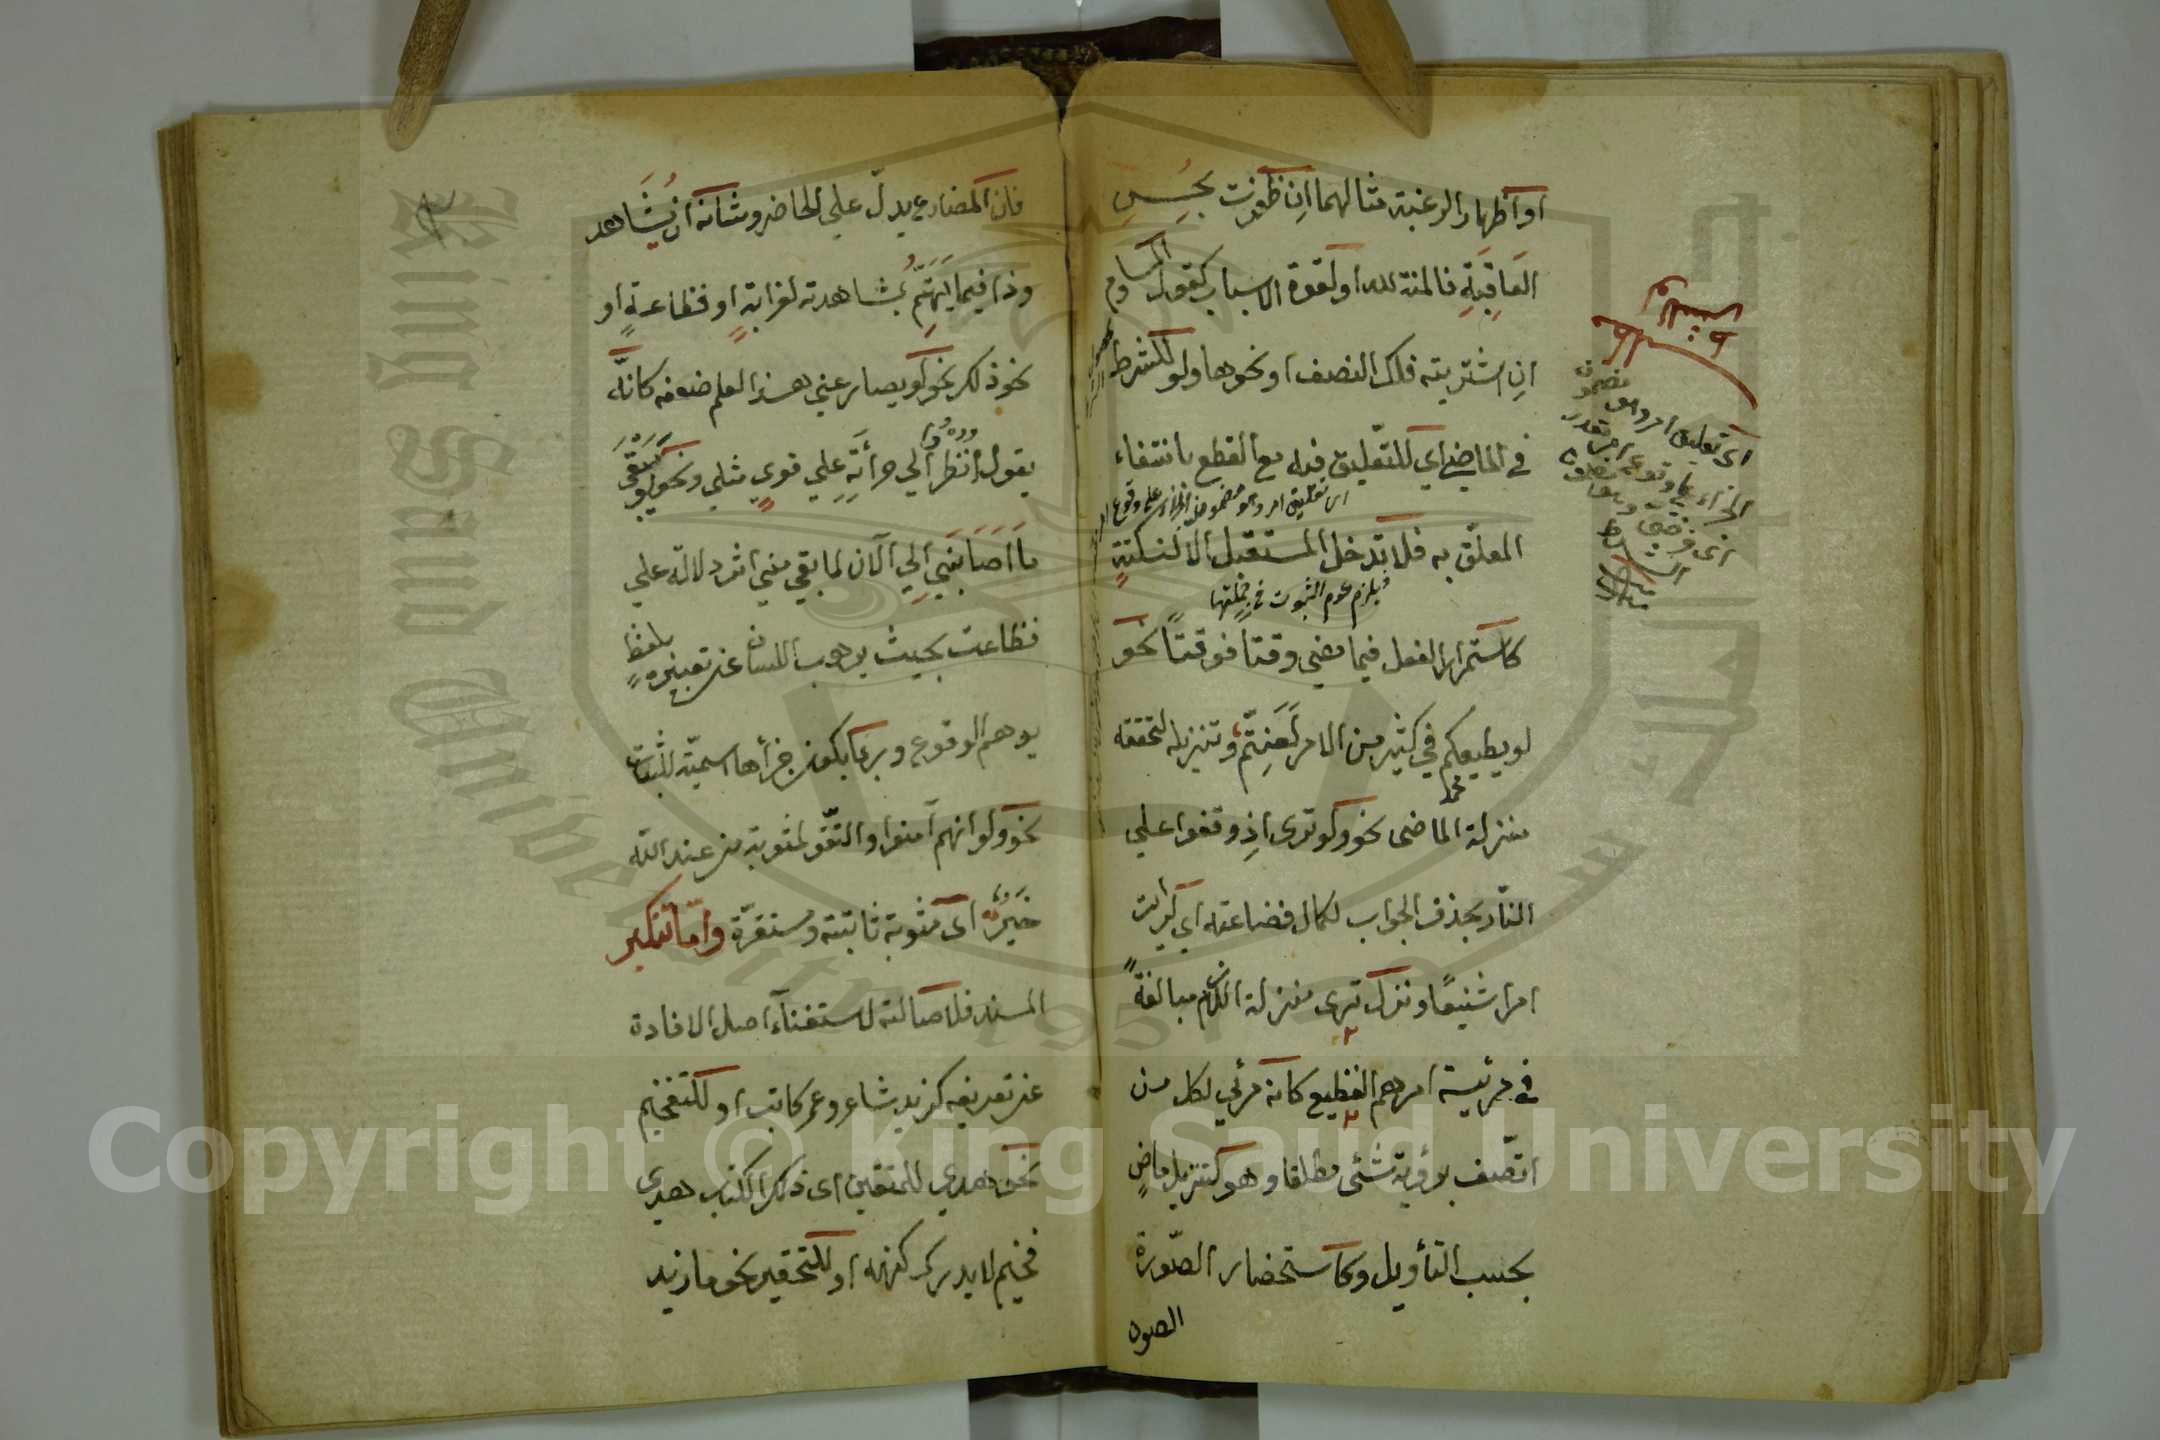 او اظهار الرغبة مثالهما ان ظفرت بحسن
العاقبة فالمنة لله او لقوة الاسباب كقول المساوم
ان اشتريته فلك النصف او نحوها ولو للشرط
في الماضي اي للتعليق فيه مع القطع بانتفاء
المعلق به فلا تدخل المستقبل الا لنكتة
ويلزم عدم الثبوت في جملتها
كاستمرار الفعل فيما مضى وقتا فوقتا نحو
لو يطيعكم في كثير من الامر لعنتم وتنزيله لتحققه
منزلة الماضى نحو ولو ترى اذ وقفوا على
النار بحذف الجواب لكمال فضاعته اي لرايت
امرا شنيعا ونزل ترى منزلة اللازم مبالغة
في مرئية امرهم الفظيع كانه مرئي لكل من
اتصف برؤية شئ مطلقا وهو كتنزيل ماض
بحسب التأويل وكاستحضار الصورة
الصورة
اى تعليق امر وهو مضمون
الجزاء
فان المضارع يدل على الحاضر وشانه ان يشاهد
وذا فيما يهتم بمشاهدته لغرابة او فظاعة او
نحو ذلك نحو لو يصارعني هذا العلم ضعفه كانه
يقول انظروا الي جرأته علي قوي مثلي ونحو لو يبقى
ما اصابني الي الآن لما بقي مني اثر دلالة علي
فظاعته بحيث يرهب اللسان عن تعبيره بلفظ
يوهم الوقوع وربما يكون جزأها اسمية للثبات
نحو ولو انهم آمنوا واتقوا لمثوبة من عند الله
خير اى مثوبة ثابتة ومستقرة واما تنكير
المسند فلاصالته لاستغناء اصل الافادة
عن تعريفه كزيد شاعر وعمر كاتب او للتفخيم
نحو هدي للمتقين اى ذلك الكتاب هدي
فخيم لا يدرك كنهه او للتحقير نحو ما زيد
Copyright © King Saud University
King Saud University
1957